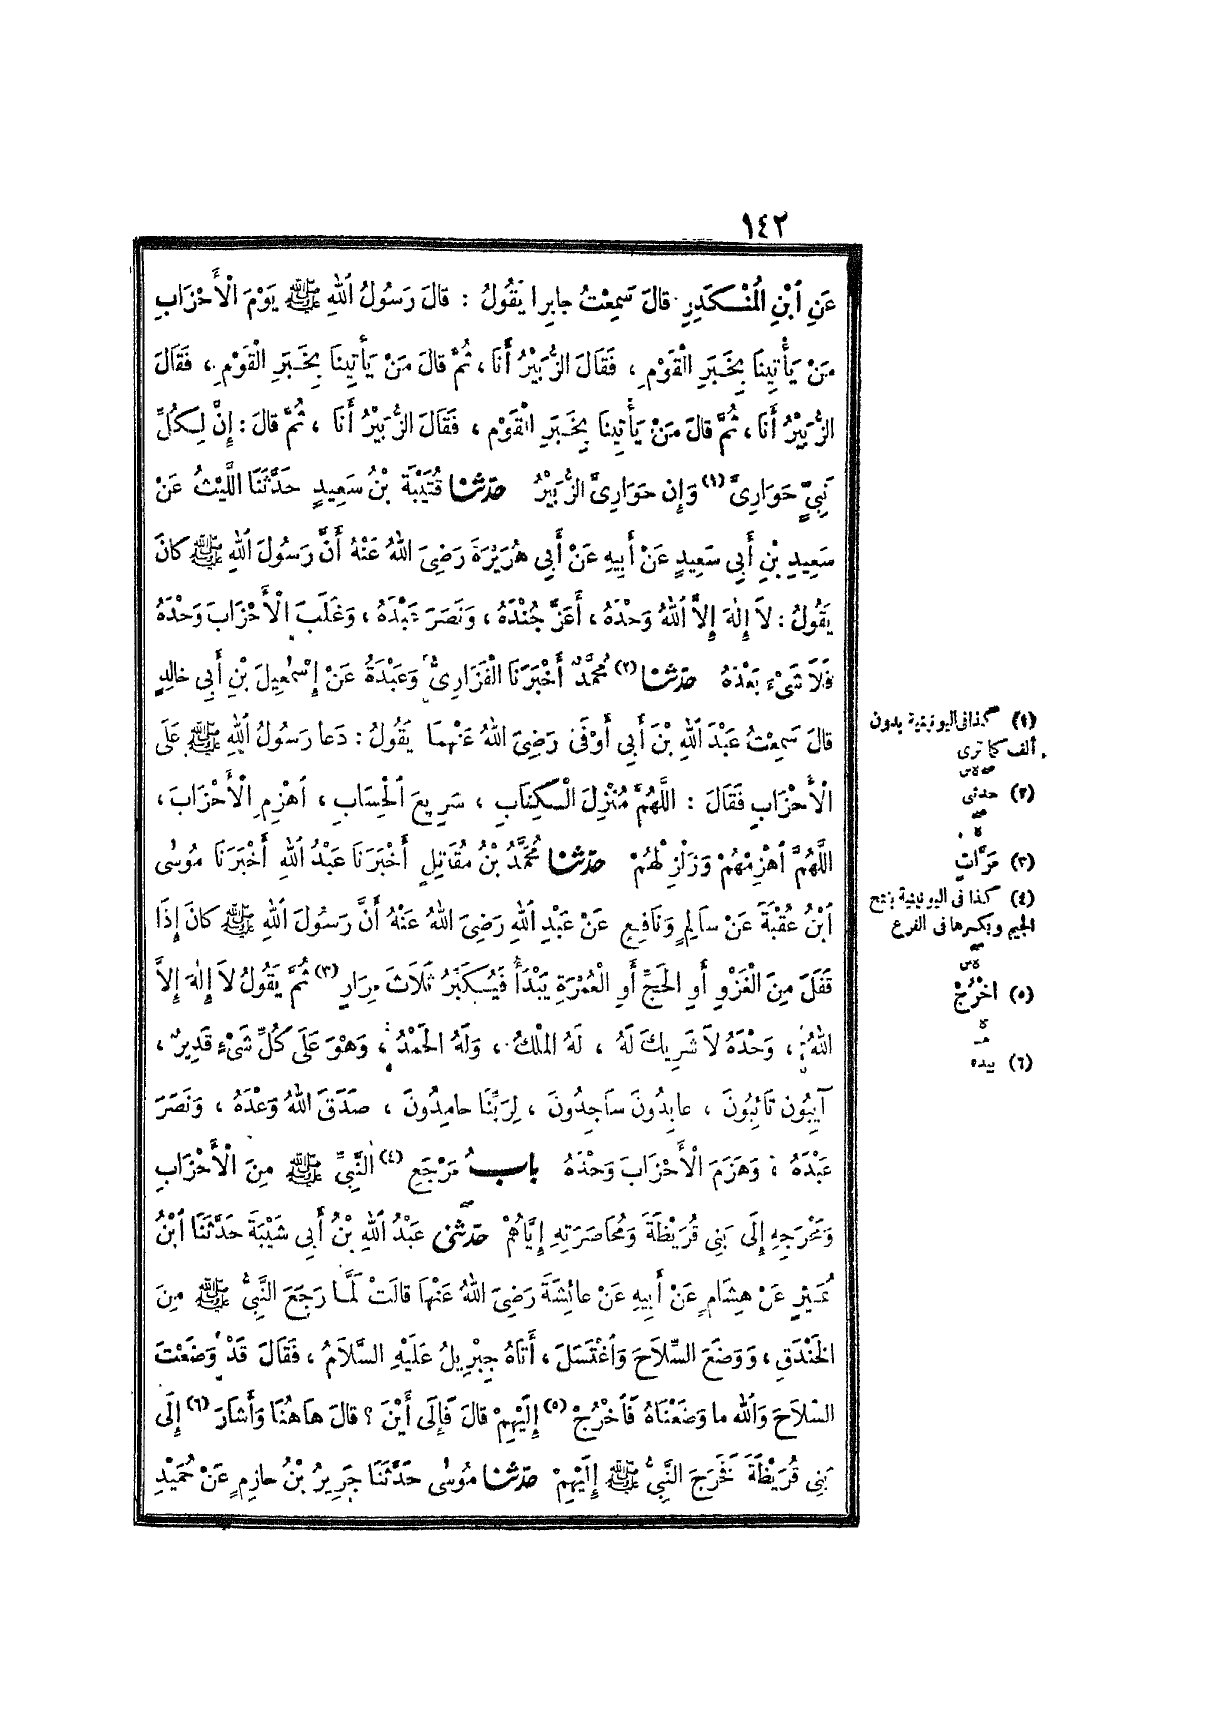 ١٤٢
عَنِ ٱبْنِ الْمُنْكَدِرِ قَالَ سَمِعْتُ جَابِرًا يَقُولُ : قَالَ رَسُولُ ٱللهِ ﷺ يَوْمَ الْأَحْزَابِ
مَنْ يَأْتِينَا بِخَبَرِ الْقَوْمِ ، فَقَالَ الزُّبَيْرُ أَنَا ، ثُمَّ قَالَ مَنْ يَأْتِينَا بِخَبَرِ الْقَوْمِ ، فَقَالَ
الزُّبَيْرُ أَنَا ، ثُمَّ قَالَ مَنْ يَأْتِينَا بِخَبَرِ الْقَوْمِ ، فَقَالَ الزُّبَيْرُ أَنَا ، ثُمَّ قَالَ : إِنَّ لِكُلِّ
نَبِيٍّ حَوَارِىَّ (١) وَإِن حَوَارِىَّ الزُّبَيْرُ حَدَّثَنَا قُتَيْبَةُ بْنُ سَعِيدٍ حَدَّثَنَا اللَّيْثُ عَنْ
سَعِيدِ بْنِ أَبِي سَعِيدٍ عَنْ أَبِيهِ عَنْ أَبِي هُرَيْرَةَ رَضِيَ اللهُ عَنْهُ أَنَّ رَسُولَ ٱللهِ ﷺ كَانَ
يَقُولُ : لاَ إِلٰهَ إِلاَّ ٱللهُ وَحْدَهُ ، أَعَزَّ جُنْدَهُ ، وَنَصَرَ عَبْدَهُ ، وَغَلَبَ الْأَحْزَابَ وَحْدَهُ
فَلاَ شَىْءَ بَعْدَهُ حَدَّثَنَا (٢) مُحَمَّدٌ أَخْبَرَنَا الْفَزَارِىُّ وَعَبْدَةُ عَنْ إِسْمٰعِيلَ بْنِ أَبِي خَالِدٍ
قَالَ سَمِعْتُ عَبْدَ ٱللهِ بْنَ أَبِي أَوْفَى رَضِيَ اللهُ عَنْهُمَا يَقُولُ : دَعَا رَسُولُ ٱللهِ ﷺ عَلَى
الْأَحْزَابِ فَقَالَ : اللَّهُمَّ مُنْزِلَ الْكِتَابِ ، سَرِيعَ الْحِسَابِ ، ٱهْزِمِ الْأَحْزَابَ ،
اللَّهُمَّ ٱهْزِمْهُمْ وَزَلْزِلْهُمْ حَدَّثَنَا مُحَمَّدُ بْنُ مُقَاتِلٍ أَخْبَرَنَا عَبْدُ ٱللهِ أَخْبَرَنَا مُوسٰى
ٱبْنُ عُقْبَةَ عَنْ سَالِمٍ وَنَافِعٍ عَنْ عَبْدِ ٱللهِ رَضِيَ اللهُ عَنْهُ أَنَّ رَسُولَ ٱللهِ ﷺ كَانَ إِذَا
قَفَلَ مِنَ الْغَزْوِ أَوِ الْحَجِّ أَوِ الْعُمْرَةِ يَبْدَأُ فَيُكَبِّرُ ثَلاَثَ مِرَارٍ (٣) ثُمَّ يَقُولُ لاَ إِلٰهَ إِلاَّ
ٱللهُ ، وَحْدَهُ لاَ شَرِيكَ لَهُ ، لَهُ الْمُلْكُ ، وَلَهُ الْحَمْدُ ، وَهُوَ عَلَى كُلِّ شَىْءٍ قَدِيرٌ ،
آيِبُونَ تَائِبُونَ ، عَابِدُونَ سَاجِدُونَ ، لِرَبِّنَا حَامِدُونَ ، صَدَقَ اللهُ وَعْدَهُ ، وَنَصَرَ
عَبْدَهُ ، وَهَزَمَ الْأَحْزَابَ وَحْدَهُ بابُ مَرْجَعِ (٤) النَّبِيِّ ﷺ مِنَ الْأَحْزَابِ
وَمَخْرَجِهِ إِلَى بَنِي قُرَيْظَةَ وَمُحَاصَرَتِهِ إِيَّاهُمْ حَدَّثَنِي عَبْدُ ٱللهِ بْنُ أَبِي شَيْبَةَ حَدَّثَنَا ٱبْنُ
نُمَيْرٍ عَنْ هِشَامٍ عَنْ أَبِيهِ عَنْ عَائِشَةَ رَضِيَ اللهُ عَنْهَا قَالَتْ لَمَّا رَجَعَ النَّبِيُّ ﷺ مِنَ
الْخَنْدَقِ ، وَوَضَعَ السِّلاَحَ وَٱغْتَسَلَ ، أَتَاهُ جِبْرِيلُ عَلَيْهِ السَّلاَمُ ، فَقَالَ قَدْ وَضَعْتَ
السِّلاَحَ وَٱللهِ مَا وَضَعْنَاهُ فَٱخْرُجْ (٥) إِلَيْهِمْ قَالَ فَإِلَى أَيْنَ ؟ قَالَ هَاهُنَا وَأَشَارَ (٦) إِلَى
بَنِي قُرَيْظَةَ فَخَرَجَ النَّبِيُّ ﷺ إِلَيْهِمْ حَدَّثَنَا مُوسٰى حَدَّثَنَا جَرِيرُ بْنُ حَازِمٍ عَنْ حُمَيْدِ
(١) كذا فى اليونينية بدون
ألف كما ترى
(٢) حدثنى
(٣) مَرَّاتٍ
(٤) كذا فى اليونينية بفتح
الجيم وبكسرها فى الفرع
(٥) اخْرُجْ
(٦) بيده